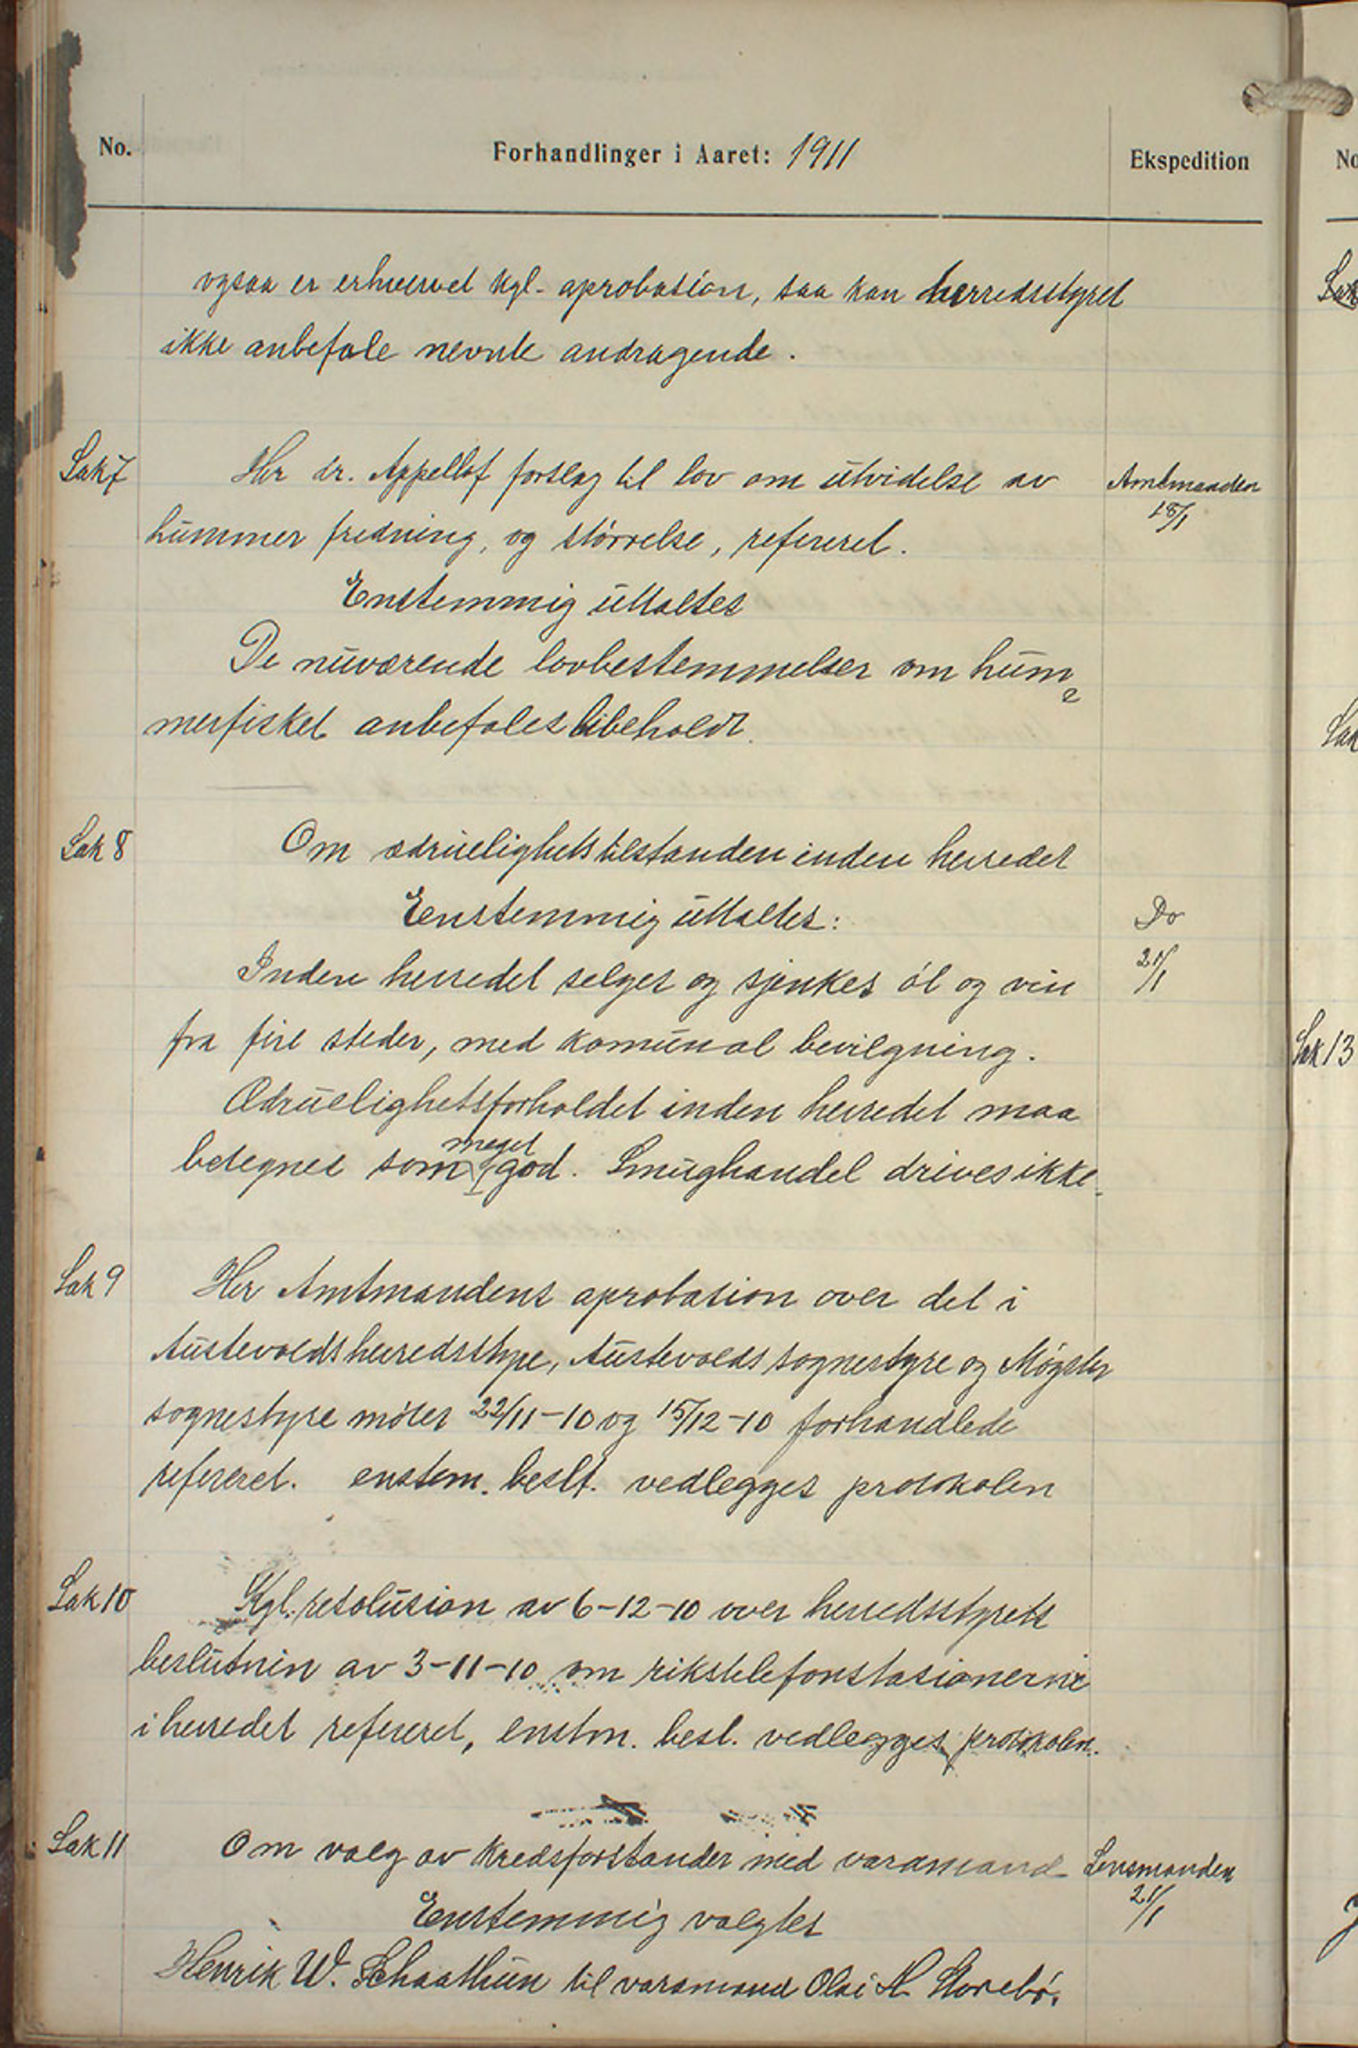 No. Forhandlinger i Aaret: 1911 Ekspedition
ogsaa er erhvervet kgl. aprobasion, saa kan herredsstyret
ikke anbefale nevnte andragende.
Sak 7 Hr dr. Appelløf forslag til lov om utvidelse av Amtmanden
hummer fredning, og størrelse, refereret. 18/1
Enstemmig uttaltes
De nuværende lovbestemmelser om hum-
merfisket anbefales bibeholdt.
Sak 8 Om ædruelighetstilstanden inden herredet
Eenstemmig uttaltes: Do
Inden herredet selges og sjenkes øl og vin 21/1
fra fire steder, med komunal bevilgning.
Ædruelighetsforholdet inden herredet maa
betegnes som meget god. Smughandel drives ikke.
Sak 9 Her Amtmandens aprobasion over det i
Austevolds herredstyre, Austevolds sognestyre og Møgster
sognestyre møter 22/11-10 og 15/12-10 forhandlede
refereret. enstem. beslt. vedlegges protokolen
Sak 10 Kgl. resolusion av 6-12-10 over herredsstyrets
beslutnin av 3-11-10 om rikstelefonstasionerne
i herredet refereret, enstm. besl. vedlegges protokolen.
Sak 11 Om valg av kredsforstander med varamand Lensmanden
Enstemmig valgtes 21/1
Henrik W. Schaathun til varamand Olai A. Storebø.
No
Sak
Sak
Sak 13